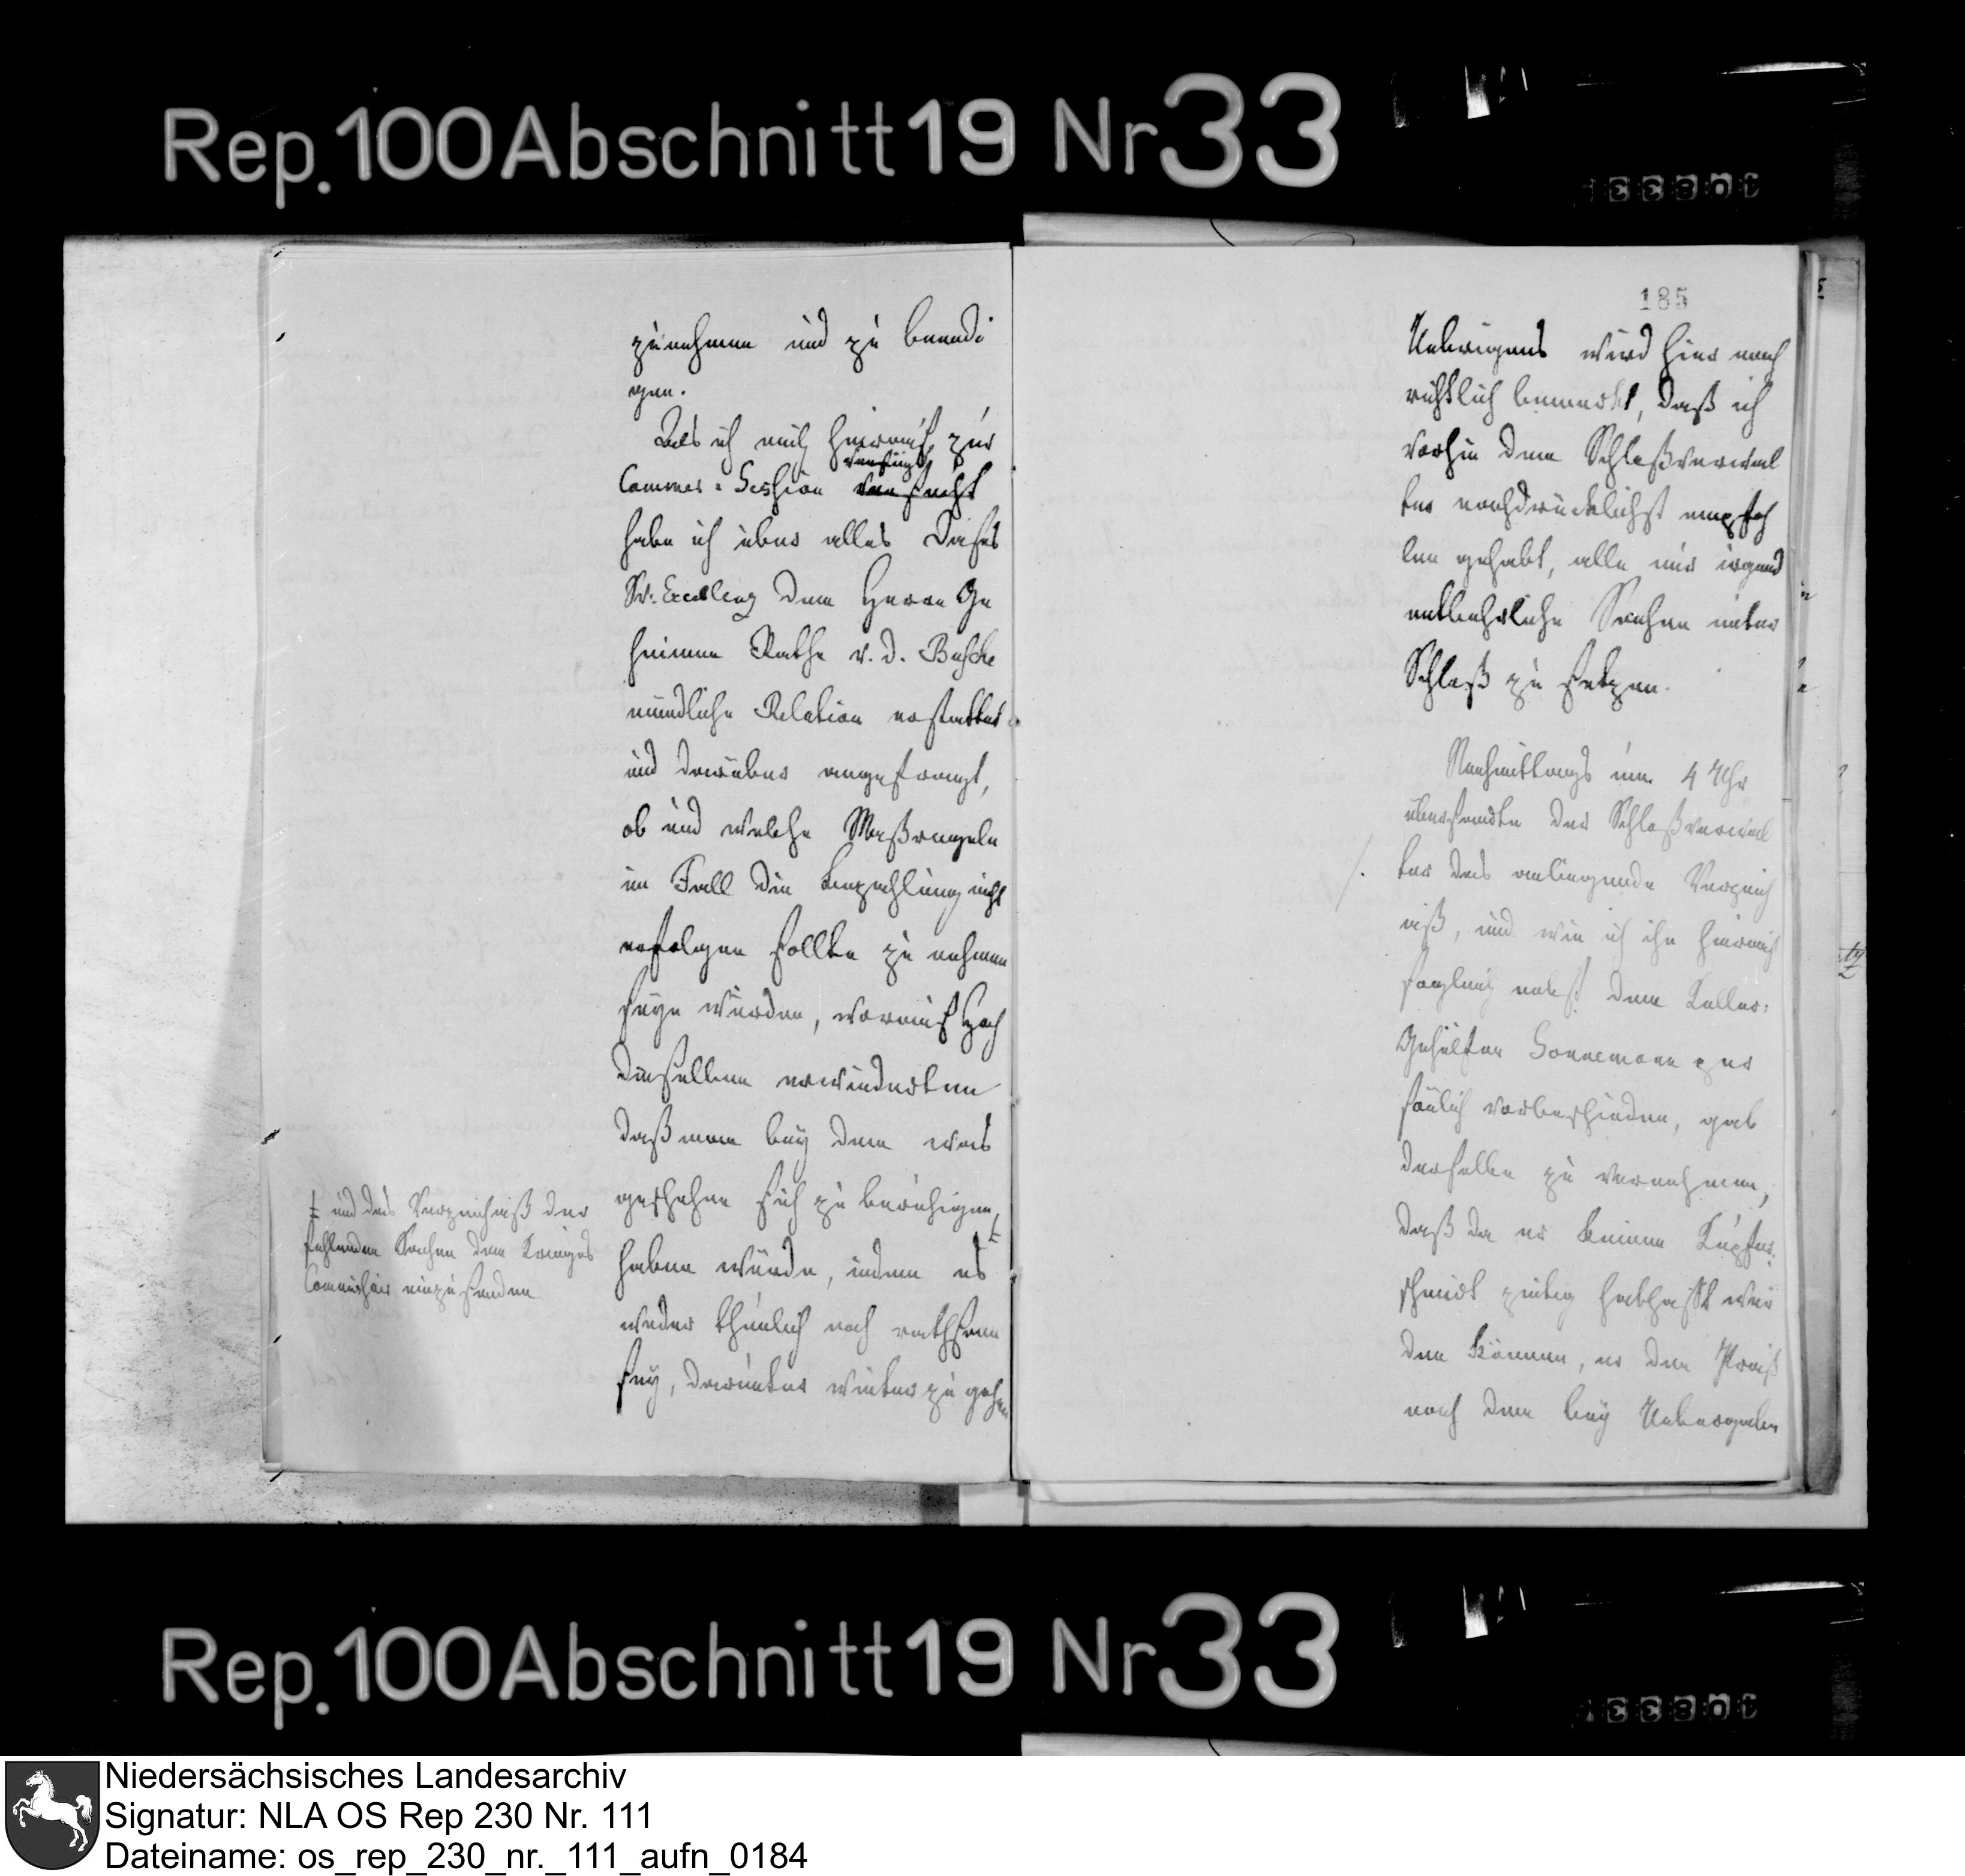 Rep. 100 Abschnitt 19 Nr 33
zunehmen und zu beendi
gen.
Als ich mich hierauf zur
verfügt
Cammer-Session
habe ich über alles dieses
Sr. Excellenz dem Herrn Ge
heimen Rathe v. d. Busche
mündliche Relation erstattet
und darüber angefragt,
ob und welche Maßregeln
im Fall die Bezahlung nicht
erfolgen sollte zu nehmen
seyn würden, worauf Hoch
dieselben erwiederten
daß man bey dem was
geschehen sich zu beruhigen ‡
haben würde, indem es
weder thunlich noch rathsam
sey, darunter weiter zu gehen
‡ und das Verzeichniß der
fehlenden Sachen dem Krieges
Commissair einzusenden
185
Uebrigens wird hier nach
richtlich bemerkt, daß ich
vorhin dem Schloßverwal
ter nachdrücklichst empfoh
len gehabt, alle nur irgend
entbehrliche Sachen unter
Schloß zu setzen.
Nachmittags um 4 Uhr
übersandte der Schloßverwal
/. ter das anliegende Verzeich
niß, und wie ich ihn hierauf
sogleich nebst dem Keller-
Gehülfen Sonnemann per
sönlich vorbeschieden, gab
derselbe zu vernehmen,
daß da er keinen Kupfer
schmidt zeitig habhaft wer
den können, er den Preiß
nach dem bey Uebergaben
Rep. 100 Abschnitt 19 Nr 33
Niedersächsisches Landesarchiv
Signatur: NLA OS Rep 230 Nr. 111
Dateiname: os_rep_230_nr._111_aufn_0184